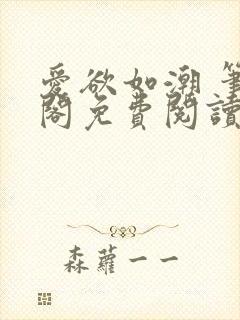 愛欲如潮 筆
閣免費閱讀
森蘿一一